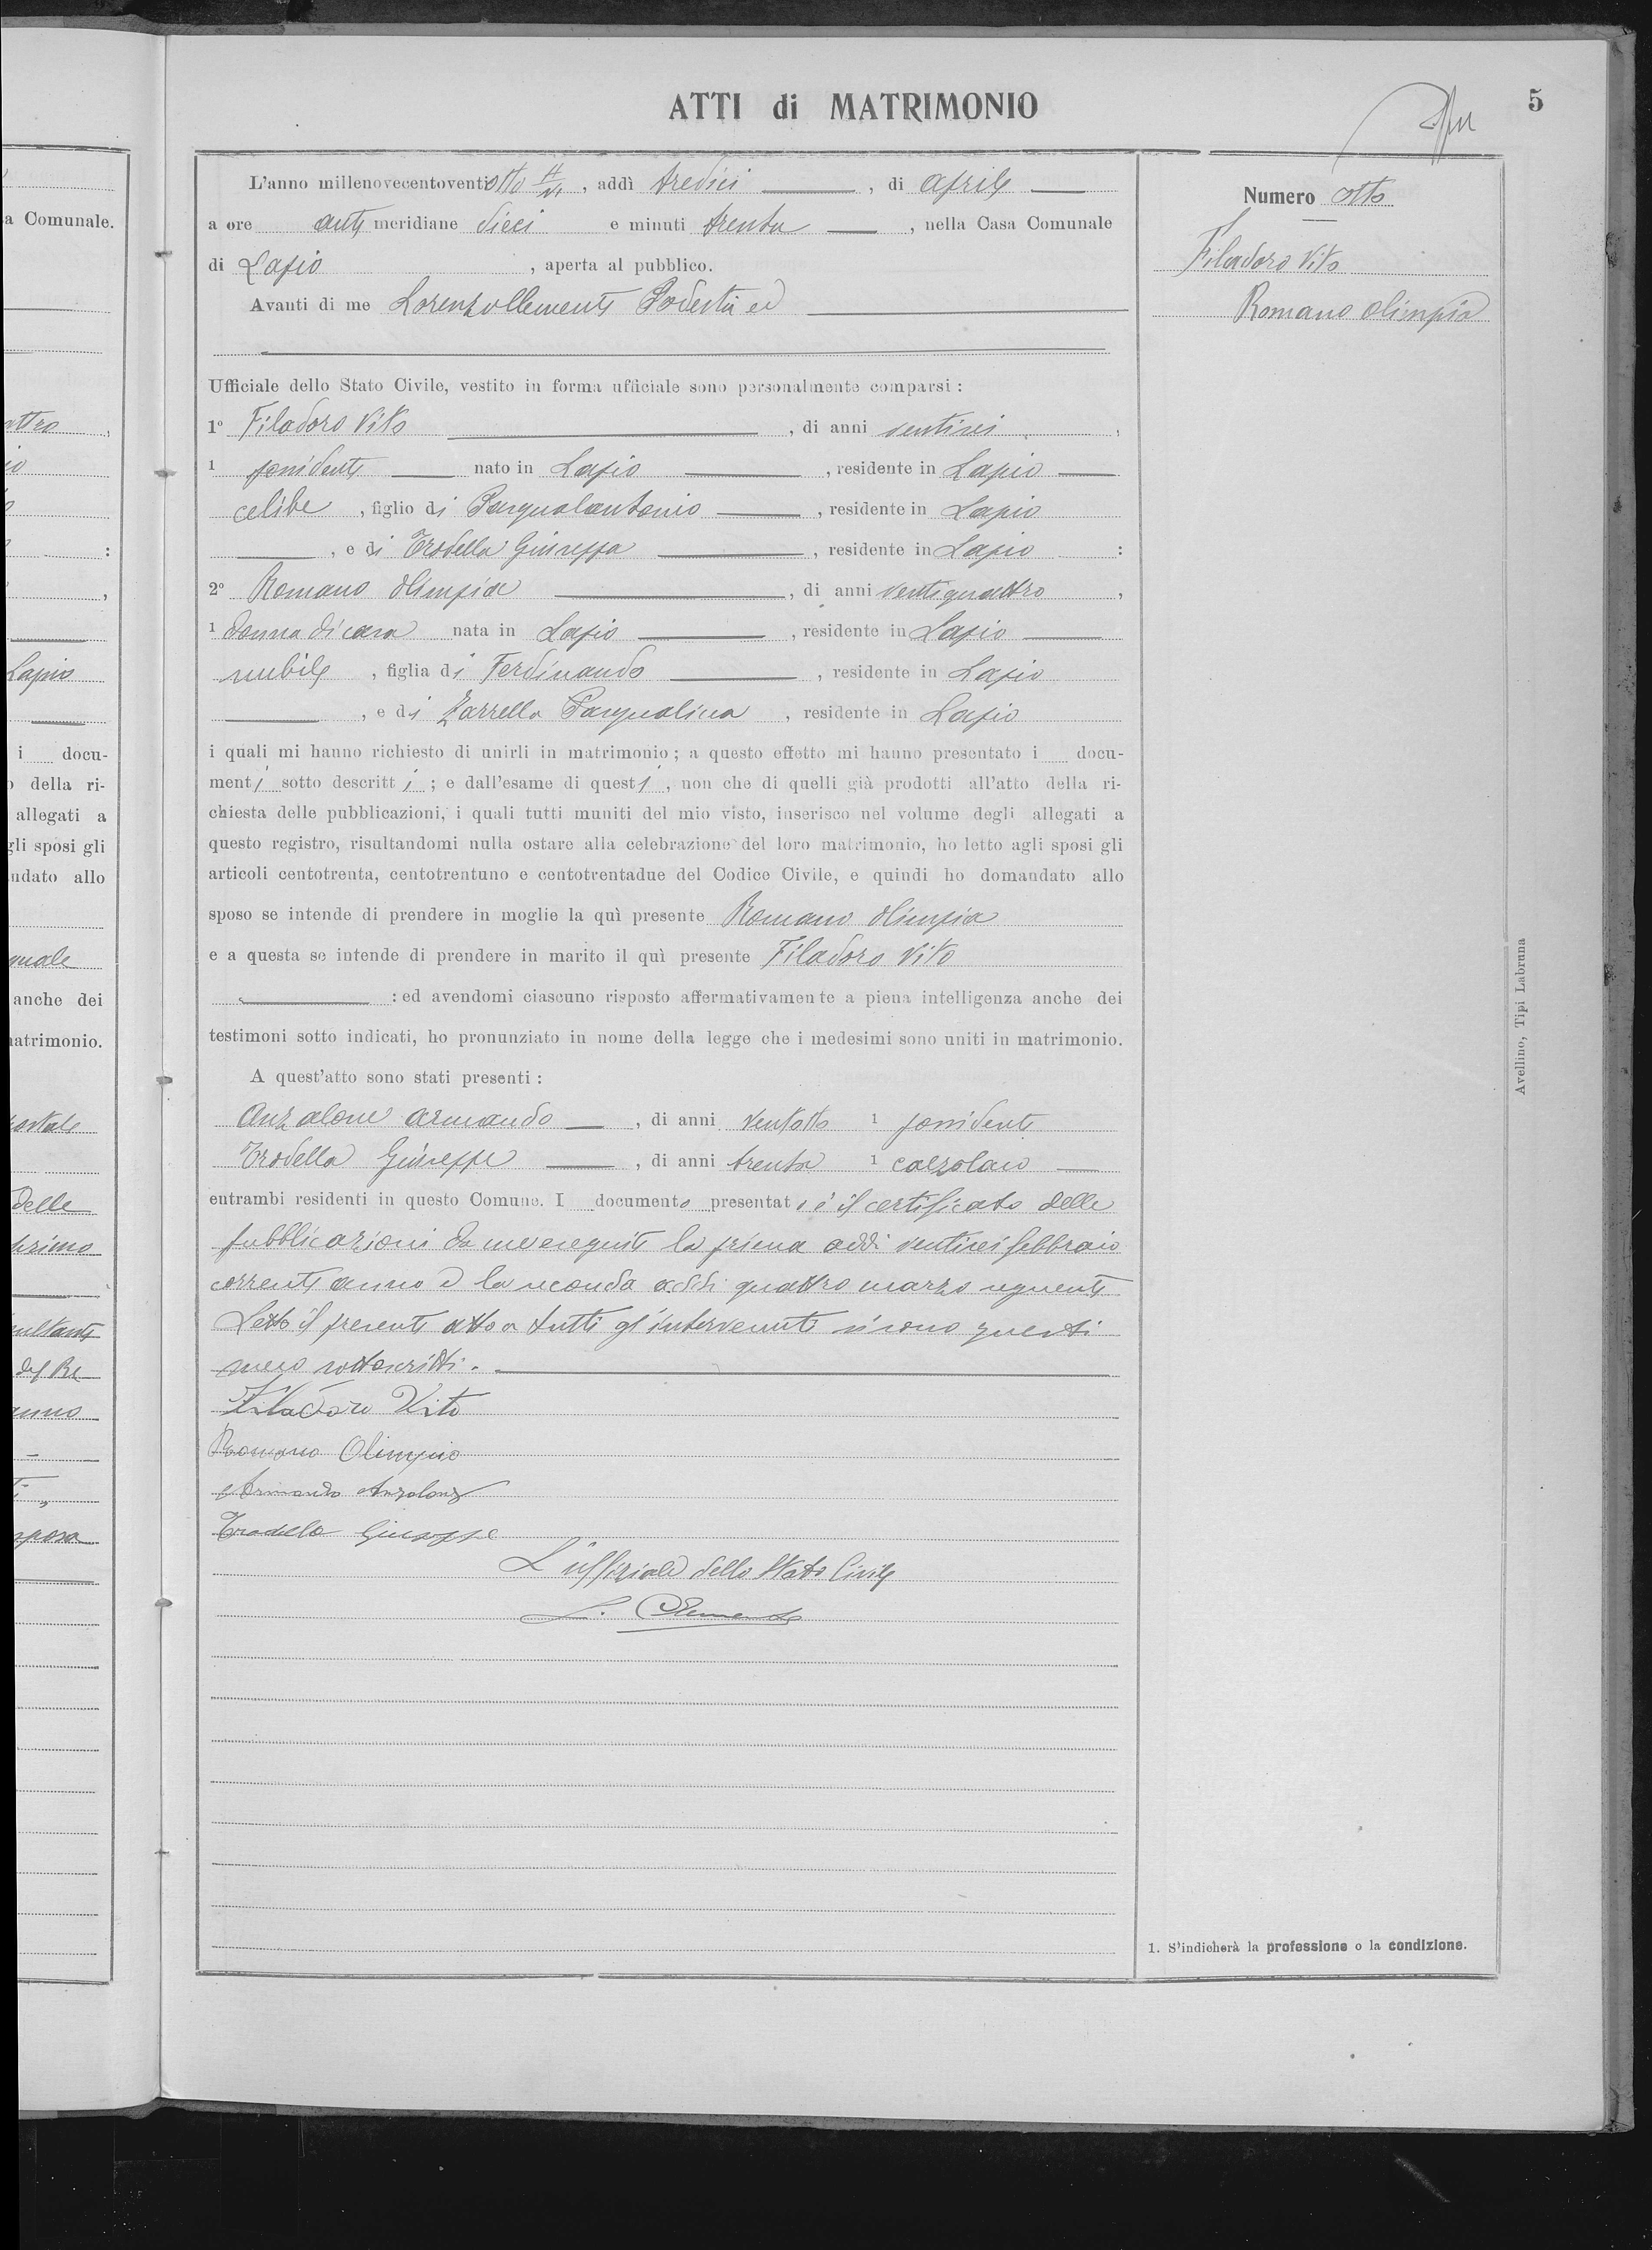 ATTI di MATRIMONIO
5
L'anno millenovecentoventiotto A/VI, addì tredici, di aprile
a ore anti meridiane dieci e minuti trenta, nella Casa Comunale
di Lapio, aperta al pubblico.
Avanti di me Lorenzo Clemente Podestà ed
Ufficiale dello Stato Civile, vestito in forma ufficiale sono personalmente comparsi :
1º Filadoro Vito, di anni ventisei,
1 possidente nato in Lapio, residente in Lapio
celibe, figlio di Pasqualantonio, residente in Lapio
, e di Trodella Giuseppa, residente in Lapio :
2º Romano Olimpia, di anni ventiquattro,
1 donna di casa nata in Lapio, residente in Lapio
nubile, figlia di Ferdinando, residente in Lapio
, e di Zarrella Pasqualina, residente in Lapio
i quali mi hanno richiesto di unirli in matrimonio ; a questo effetto mi hanno presentato i docu-
menti sotto descritti ; e dall'esame di questi, non che di quelli già prodotti all'atto della ri-
chiesta delle pubblicazioni, i quali tutti muniti del mio visto, inserisco nel volume degli allegati a
questo registro, risultandomi nulla ostare alla celebrazione del loro matrimonio, ho letto agli sposi gli
articoli centotrenta, centotrentuno e centotrentadue del Codice Civile, e quindi ho domandato allo
sposo se intende di prendere in moglie la quì presente Romano Olimpia
e a questa se intende di prendere in marito il quì presente Filadoro Vito
: ed avendomi ciascuno risposto affermativamente a piena intelligenza anche dei
testimoni sotto indicati, ho pronunziato in nome della legge che i medesimi sono uniti in matrimonio.
A quest'atto sono stati presenti :
Anzalone Armando, di anni ventotto 1 possidente
Trodella Giuseppe, di anni trenta 1 calzolaio
entrambi residenti in questo Comune. I documento presentato è il certificato delle
pubblicazioni da me eseguite la prima addì ventisei febbraio
corrente anno e la seconda addì quattro marzo seguente
Letto il presente atto a tutti gl'intervenuti si sono questi
meco sottoscritti.
Filadoro Vito
Romano Olimpia
Armando Anzalone
Trodella Giuseppe
L'uffiziale dello Stato Civile
L. Clemente
Numero otto
Filadoro Vito
Romano Olimpia
1. S'indicherà la professione o la condizione.
Avellino, Tipi Labruna
a Comunale.
Lapio
i docu-
della ri-
allegati a
gli sposi gli
ndato allo
anche dei
atrimonio.
delle
del Re
anno
sposa